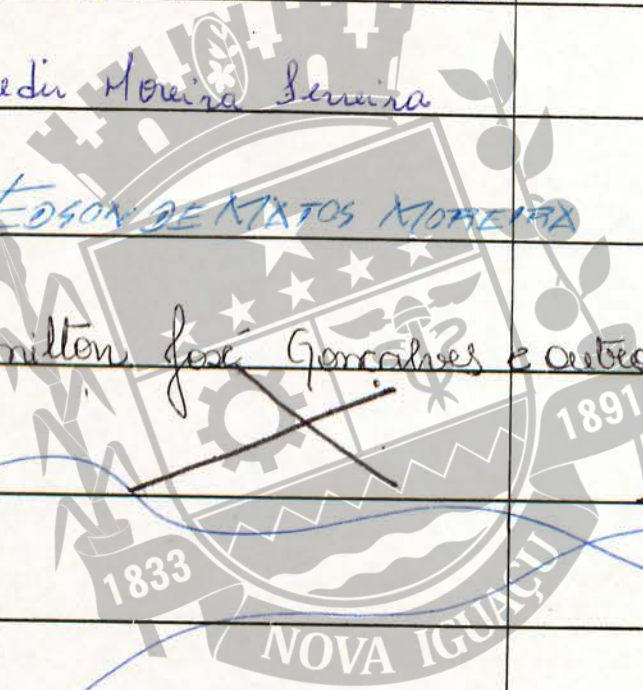 edir Moreira Ferreira
EDSON DE MATOS MOREIRA
milton José Gonçalves e outro
1891
1833
NOVA IGUAÇU